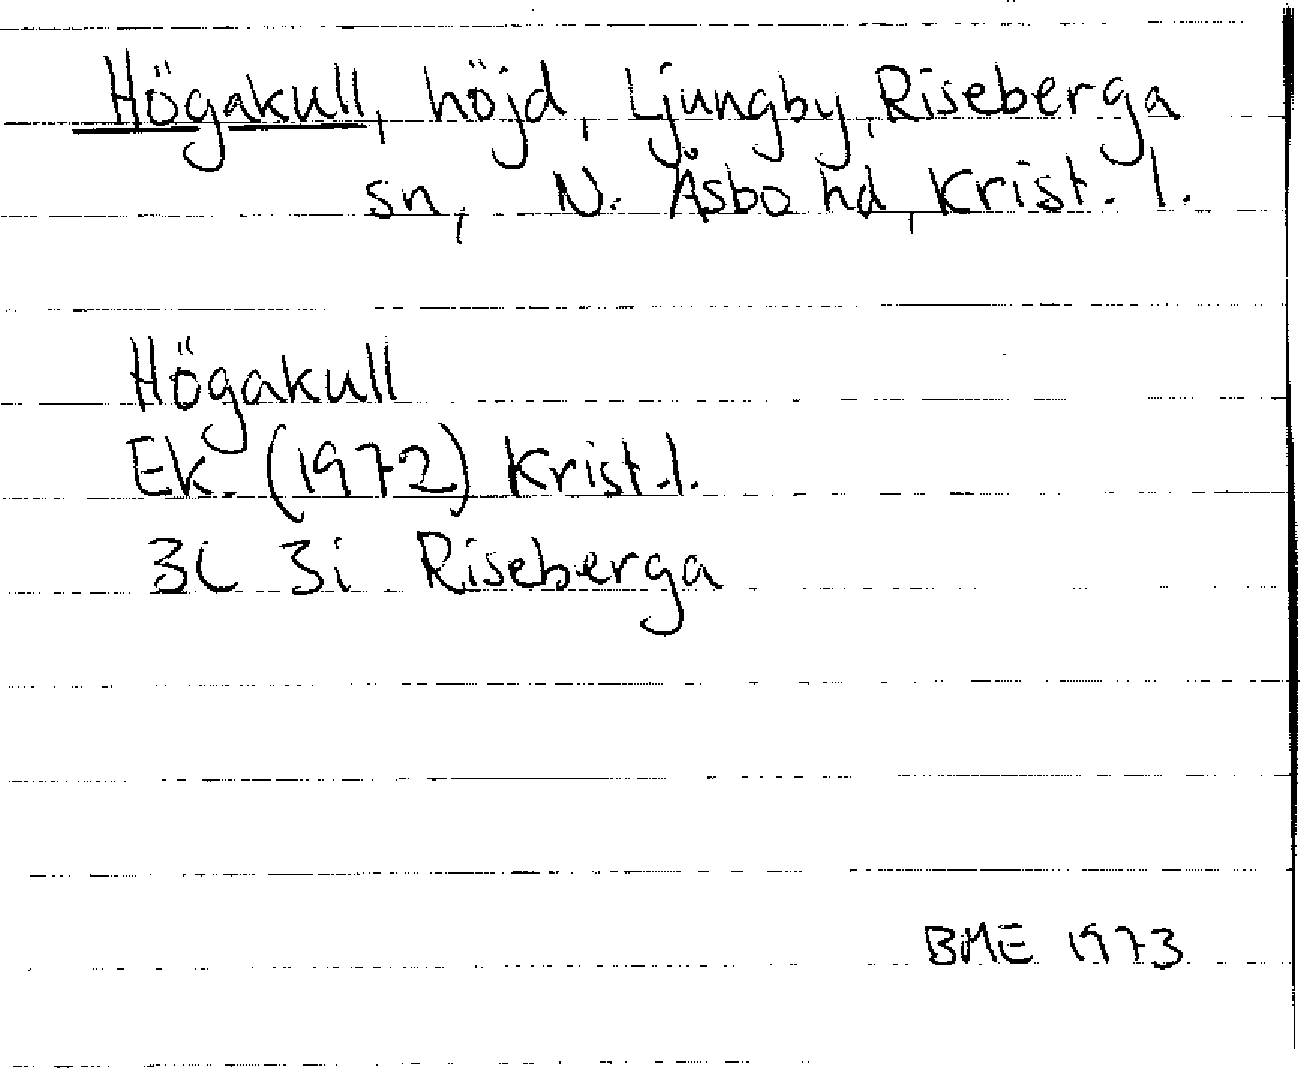 Högakull, höjd, Ljungby, Riseberga
sn, N. Åsbo hd, Krist. l.
Högakull
Ek. (1972) Krist. l.
3C 3i Riseberga
BME 1973